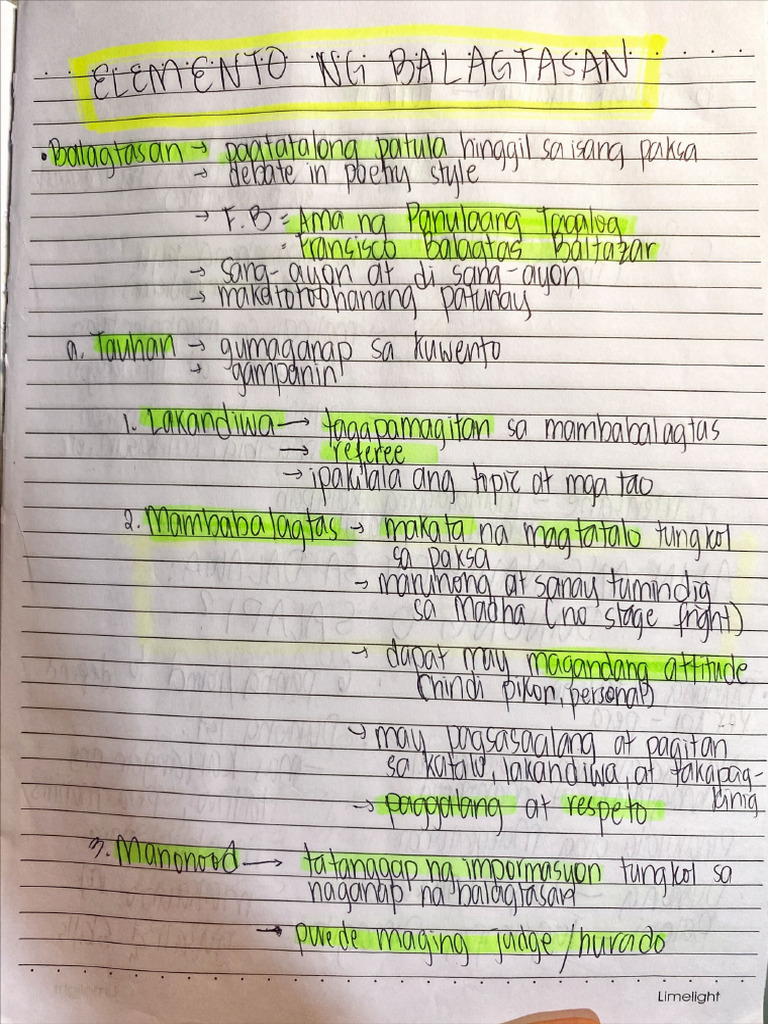 ELEMENTO NG BALAGTASAN
• Balagtasan → pagtatalong patula hinggil sa isang paksa
→ debate in poetry style
→ F.B = Ama ng Panulaang Tagalog
= Fransisco Balagtas Baltazar
→ sang-ayon at di sang-ayon
→ makatotoohanang patunay
a. Tauhan → gumaganap sa kuwento
→ gampanin
1. Lakandiwa → tagapamagitan sa mambabalagtas
→ referee
→ ipakilala ang topic at mga tao
2. Mambabalagtas → makata na magtatalo tungkol
sa paksa
→ marunong at sanay tumindig
sa madla (no stage fright)
→ dapat may magandang attitude
(hindi pikon, personal)
→ may pagsasaalang at pagitan
sa katalo, lakandiwa, at takapag-
kinig
→ paggalang at respeto
3. Manonood → tatanggap ng impormasyon tungkol sa
naganap na balagtasan
→ puede maging judge/hurado
Limelight